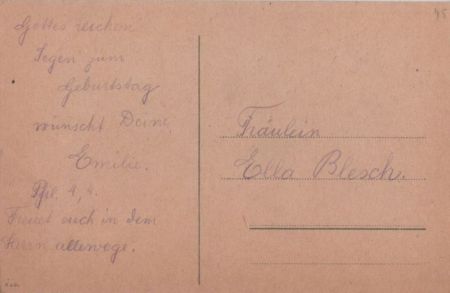 Gottes reichen
Segen zum
Geburtstag
wünscht Deine
Emilie.
Phil. 4,4.
Freuet euch in dem
Herrn allewege.
Fräulein
Ella Blesch.
45